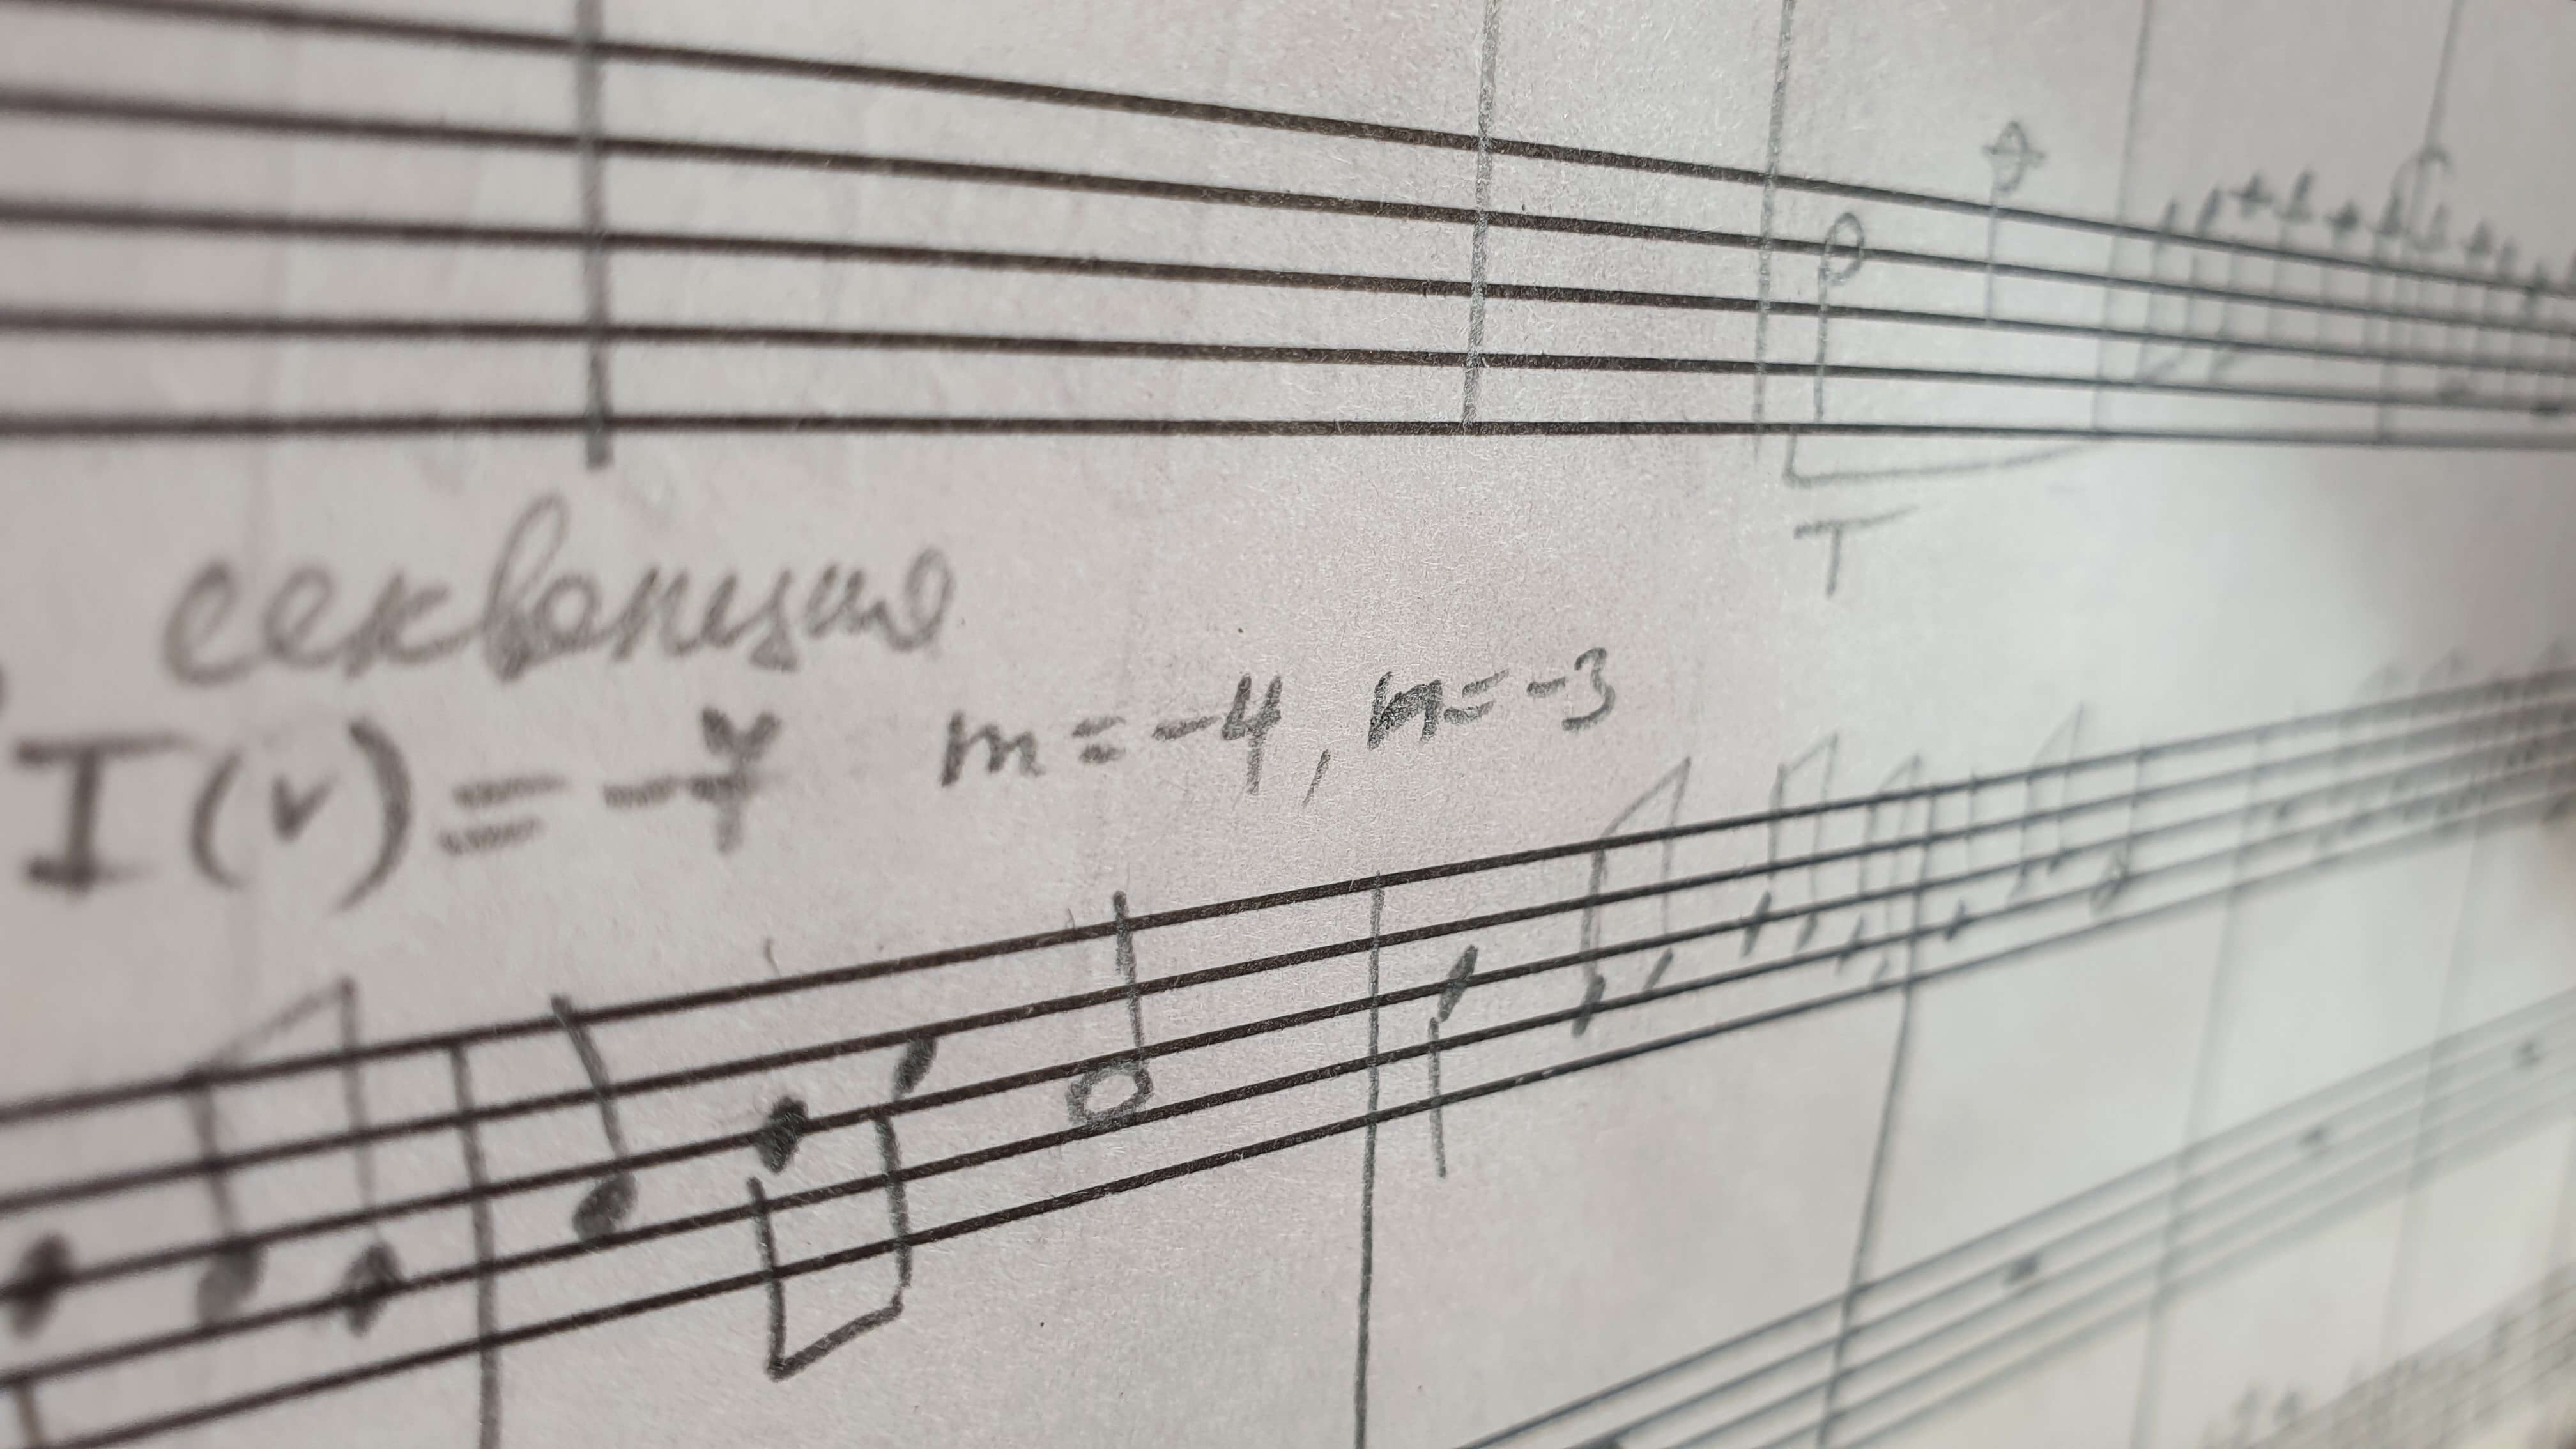 T
секвенция
I(v) = -7 m = -4, n = -3